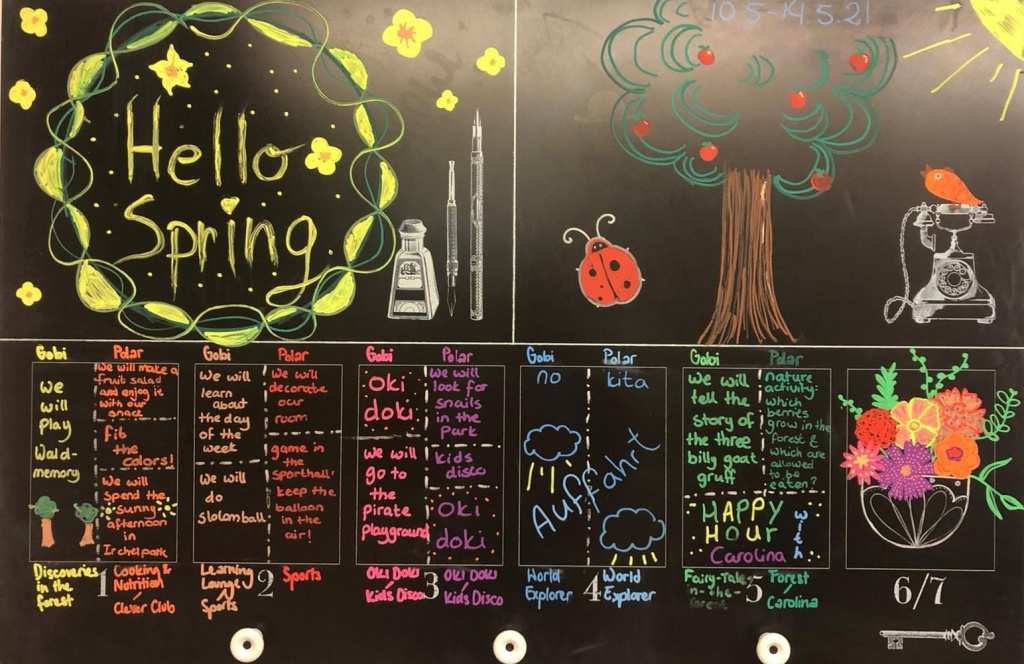 Hello
Spring
10.5-14.5.21
Gobi
we
will
play
Wald-
memory
Discoveries
in the
forest
Polar
we will make a
fruit salad
and enjoy it
with our
snack
Fit
the
colors!
We will
spend the
sunny
afternoon
in
Irchelpark
Cooking &
Nutrition
Clever Club
1
Gobi
we will
learn
about
the day
of the
week
we will
do
slolomball
Learning
Lounge
Sports
Polar
we will
decorate
our
room
game in
the
sporthall:
keep the
balloon
in the
air!
Sports
2
Gobi
OKi
doki
we will
go to
the
pirate
playground
Oki Doki
Kids Disco
Polar
we will
look for
snails
in the
Park
kids
disco
Oki
doki
Oki Doki
Kids Disco
3
Gobi
no
Polar
kita
Auffahrt
World
Explorer
4
World
Explorer
Gobi
we will
tell the
story of
the three
billy goat
gruff
Polar
nature
activity:
which
berries
grow in the
forest &
which are
allowed
to be
eaten?
HAPPY
HOUR
with
Carolina
Fairy-Tale-
in-the-
forest
5
Forest
Carolina
6/7